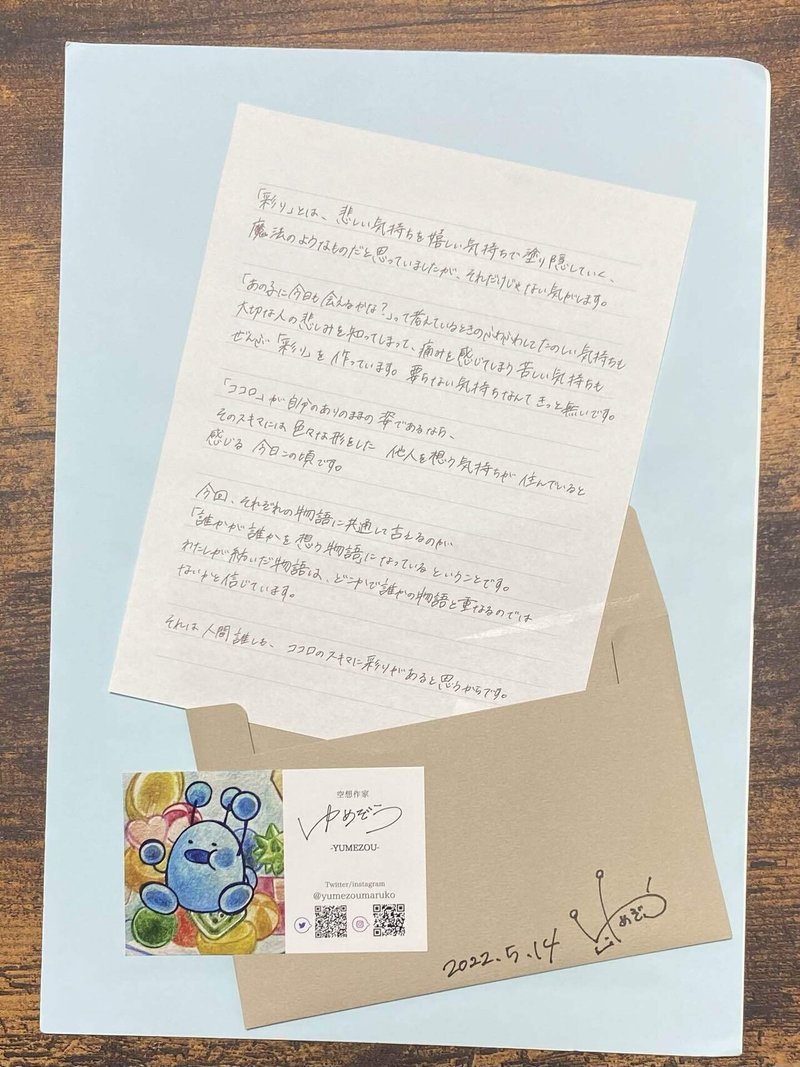 「彩り」とは、悲しい気持ちを嬉しい気持ちで塗り隠していく、
魔法のようなものだと思っていましたが、それだけじゃない気がします。
「あの子に今日も会えるかな？」って考えているときのふわふわしてたのしい気持ちも
大切な人の悲しみを知ってしまって、痛みを感じてしまう苦しい気持ちも
ぜんぶ「彩り」を作っています。要らない気持ちなんてきっと無いです。
「ココロ」が自分のありのままの姿であるなら、
そのスキマには色々な形をした他人を想う気持ちが住んでいると
感じる今日この頃です。
今回、それぞれの物語に共通して言えるのが
「誰かが誰かを想う物語」になっているということです。
わたしが紡いだ物語は、どこかで誰かの物語と重なるのでは
ないかと信じています。
それは人間誰しも、ココロのスキマに彩りがあると思うからです。
空想作家
ゆめぞう
-YUMEZOU-
Twitter/instagram
@yumezoumaruko
2022.5.14
ゆめぞう